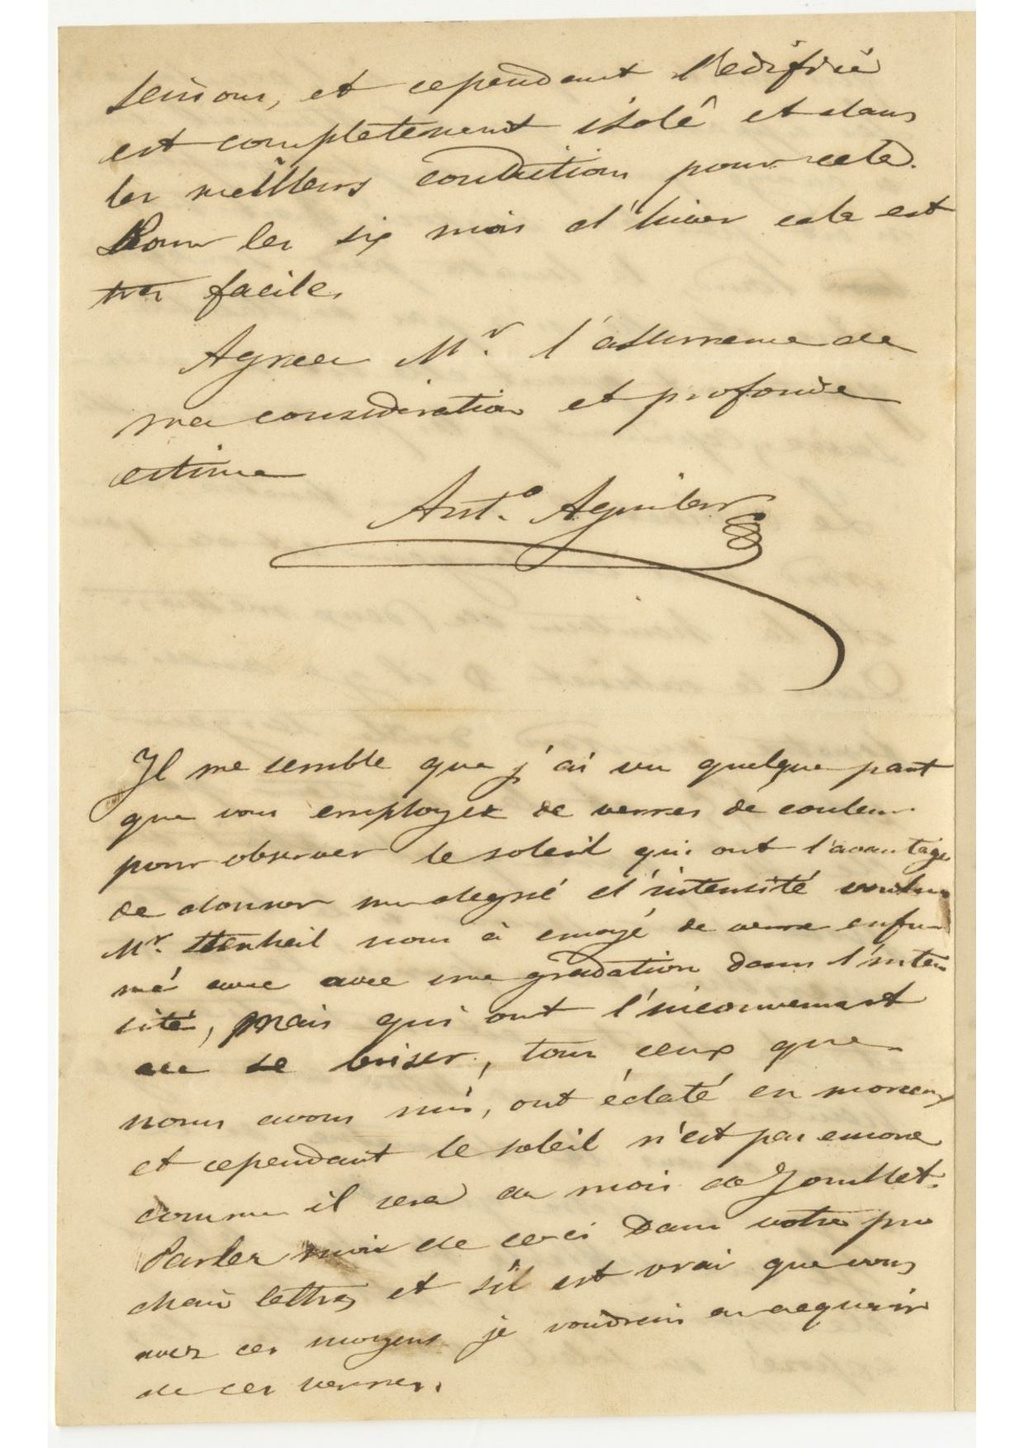 et cependant l'edifice
est completement isolé et dans
les meilleurs conditions pour cela.
Pour les six mois d'hiver cela est
tres facile.
Agreer Mr. l'assurrence de
ma consideration et profonde
estime
Anto. Aguilar
Il me semble que j'ai vu quelque part
que vous employez de verres de couleur
pour observer le soleil qui ont l'avantage
de donner un degré d'intensité voulue
Mr. Steinheil nous à envoyé de verre enfu-
mé avec une gradation dans l'inten
sité, mais qui ont l'inconvenient
de se briser, tous ceux que
nous avons mis, ont éclaté en morceaux
et cependant le soleil n'est pas encore
comme il sera au mois de Jouillet.
Parlez mois de ceci dans votre pro
chain lettre et s'il est vrai que vous
avez ces moyens je voudrais en acquerir
de ces verres.